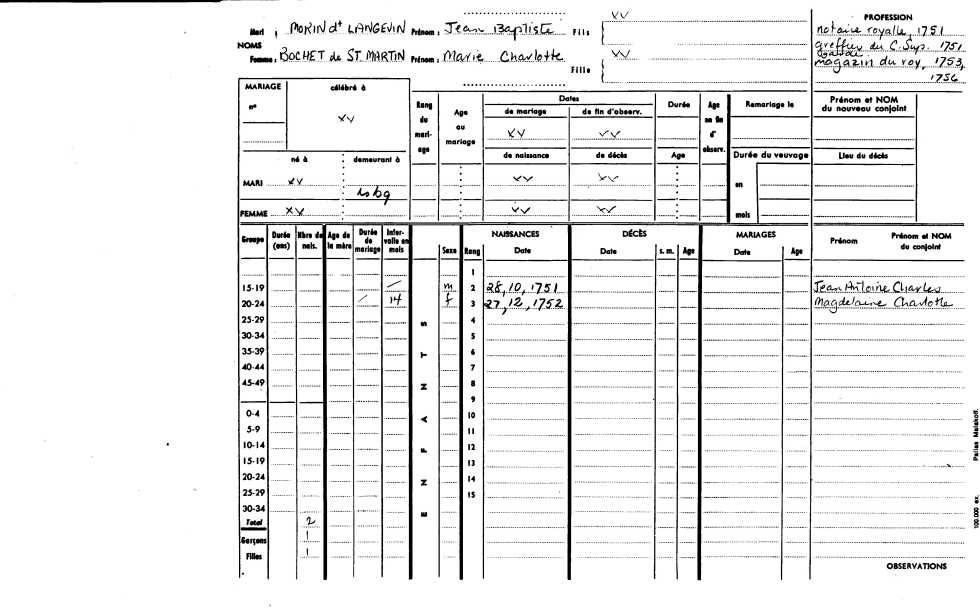 Mari : MORIN dt LANGEVIN Prénom : Jean Baptiste Fils { VV
NOMS
Femme : BOCHET de ST. MARTIN Prénom : Marie Charlotte Fille { VV
PROFESSION
notaire royalle, 1751
greffier du C. Sup. 1751
magazin du roy, 1753,
1756
MARIAGE célébré à
n°
XV
né à demeurant à
MARI XV
isbg
FEMME XV
Rang du mari-age
Age au mariage
Dates
de mariage de fin d'observ.
XV VV
de naissance de décès
XV XV
VV XV
Durée
Age
Age en fin d'observ.
Remariage le
Durée du veuvage
en
mois
Prénom et NOM du nouveau conjoint
Lieu du décès
Groupe Durée (ans) Nbre de nais. Age de la mère Durée de mariage Inter-valle en mois
ENFANTS
Sexe Rang
NAISSANCES Date
DÉCÈS Date s. m. Age
MARIAGES Date Age
Prénom Prénom et NOM du conjoint
1
15-19 / m 2 28,10,1751 Jean Antoine Charles
20-24 / 14 f 3 27,12,1752 Magdelaine Charlotte
25-29 4
30-34 5
35-39 6
40-44 7
45-49 8
9
0-4 10
5-9 11
10-14 12
15-19 13
20-24 14
25-29 15
30-34
Total 2
Garçons 1
Filles 1
OBSERVATIONS
100.000 ex. Pallas Malakoff.